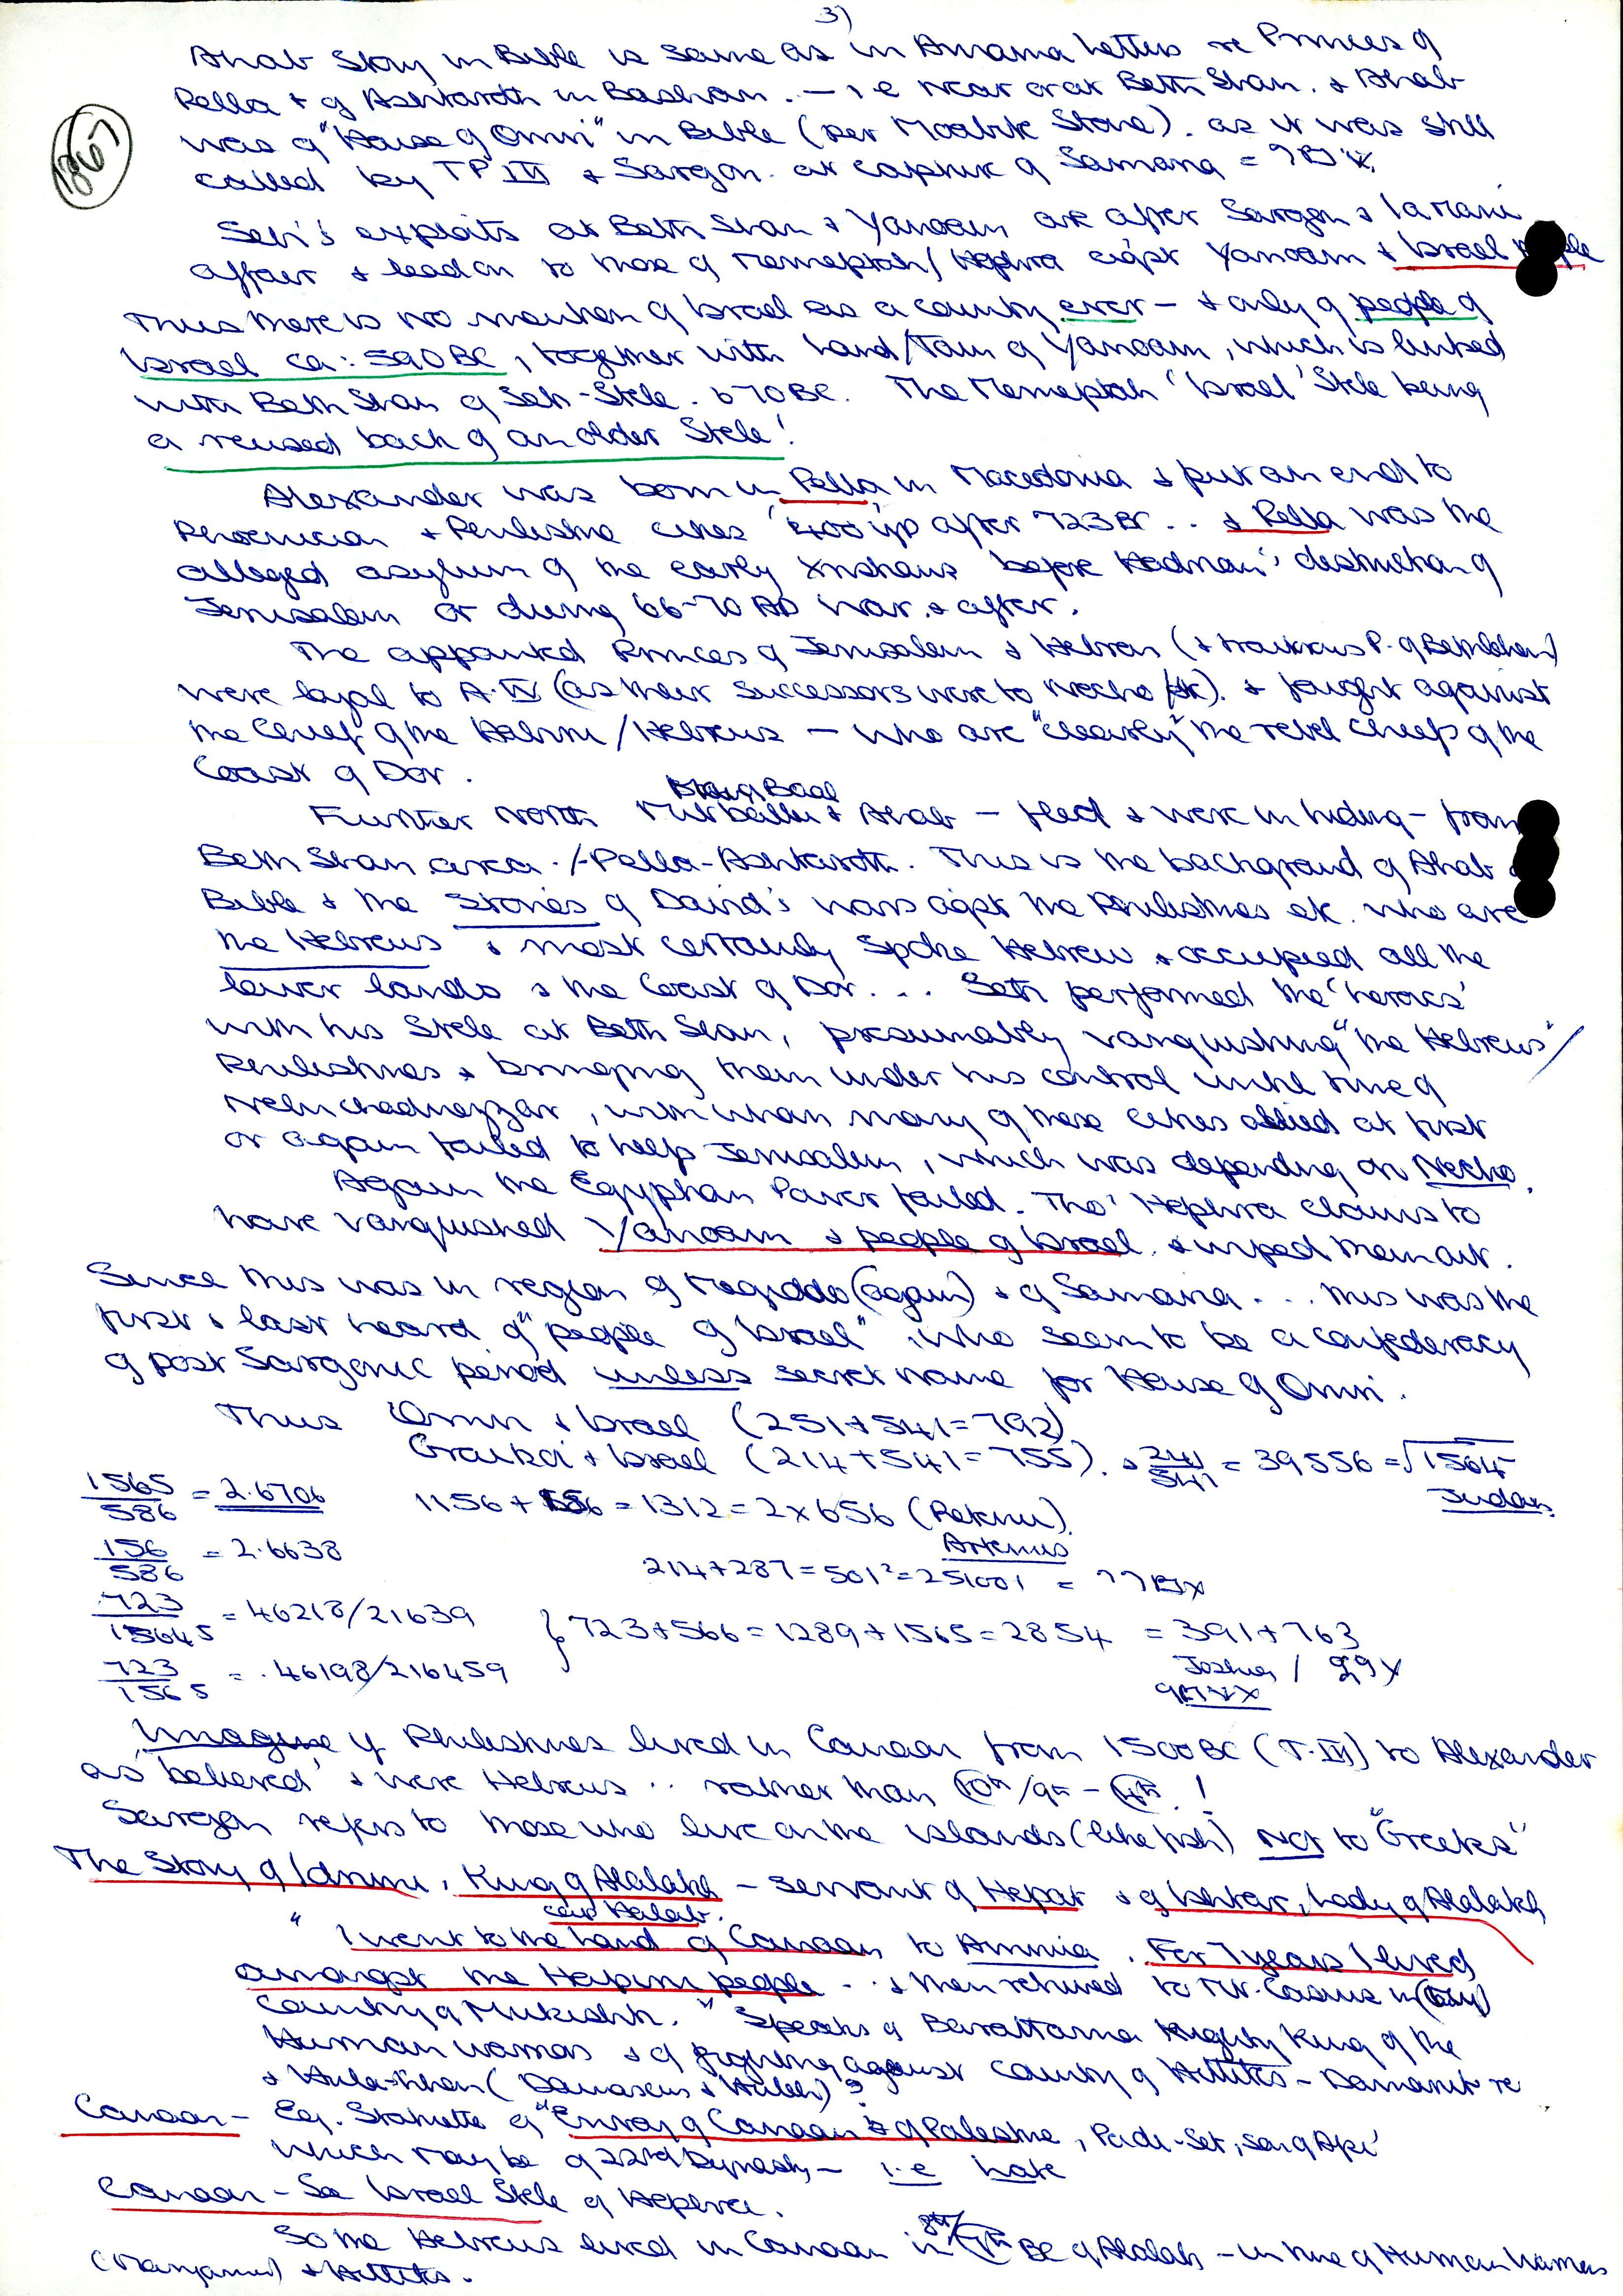 3)
1367
Ahab Story in Bible is same as in Amarna Letters re Princes of
Pella + of Ashtaroth in Bashan. — i.e near or at Beth Shan. & Ahab
was of "House of Omri" in Bible (per Moabite Stone). as it was still
called by TP III & Sargon. at capture of Samaria =
Seti's exploits at Beth Shan & Yanoam are after Sargon & Iamani
affair & lead on to those of Merneptah/Hophra agst Yanoam & Israel
Thus there is no mention of Israel as a country ever — & only of people of
Israel ca: 590 BC, together with land/Town of Yanoam, which is linked
with Beth Shan of Seti-Stele. 670 BC. The Merneptah 'Israel' Stele being
a reused back of an older Stele!
Alexander was born in Pella in Macedonia & put an end to
Phoenician & Philistine cities '400 yrs after 723 BC.. & Pella was the
alleged asylum of the early Xristians before Hadrian's destruction of
Jerusalem or during 66-70 AD war. & after.
The appointed Princes of Jerusalem & Hebron (& P. of Bethlehem)
were loyal to A.IV (as their successors were to Necho etc). & fought against
the Chief of the Habiru/Hebrews — who are "clearly" the rebel chiefs of the
Coast of Dor.
Further North & Ahab — fled & were in hiding — from
Beth Shan area./-Pella-Ashtaroth. This is the background of Ahab
Bible & the Stories of David's wars agst the Philistines etc. who are
the Hebrews & most certainly spoke Hebrew & occupied all the
lower lands & the Coast of Dor... Seti performed the 'heroics'
with his Stele at Beth Shan, presumably vanquishing "the Hebrews"/
Philistines & bringing them under his control until time of
Nebuchadnezzar, with whom many of these cities allied at first
or again failed to help Jerusalem, which was depending on Necho.
Again the Egyptian Power failed. Tho' Hophra claims to
have vanquished Yanoam & people of Israel. & wiped them out.
Since this was in region of Megiddo (again) & of Samaria... this was the
first & last heard of "people of Israel", who seem to be a confederacy
of post Sargonic period unless secret name for House of Omri.
Thus Omri & Israel (251+541=792)
& Israel (214+541=755). & 214/541 = 39556 = √15645
Judah
1565/586 = 2.6706
1156 + 156 = 1312 = 2x656
156/586 = 2.6638
Artemis
214+287=501²=251001 =
723/15645 = 46213/21639
} 723+566=1289+1565=2854 = 391+763
Joshua /
723/1565 = .46198/216459
Imagine if Philistines lived in Canaan from 1500 BC (T.III) to Alexander
as 'believed' & were Hebrews.. rather than 10th/9th – 4th!
Sargon refers to those who live on the islands (like fish) Not to "Greeks"
The Story of Idrimi, King of Alalakh — servant of Hepat & of Ishtar, Lady of Alalakh
Halab.
"I went to the land of Canaan to Ammia. For 7 years I lived
amongst the Hapiru people .. & then returned to Mt. Casius in (my)
Country of Mukishh." Speaks of Barattarna Mighty King of the
Hurrian warriors & of fighting against Country of Hittites – re
& (Damascus & )?
Canaan – Eg. Statuette of "Envoy of Canaan & of Palestine, Padi-Set, son of Api"
which may be of 22nd Dynasty — i.e late
Canaan – See Israel Stele of Hophra.
So the Hebrews lived in Canaan in 8th/ BC of Alalakh – in time of Hurrian Warriors
& Hittites.